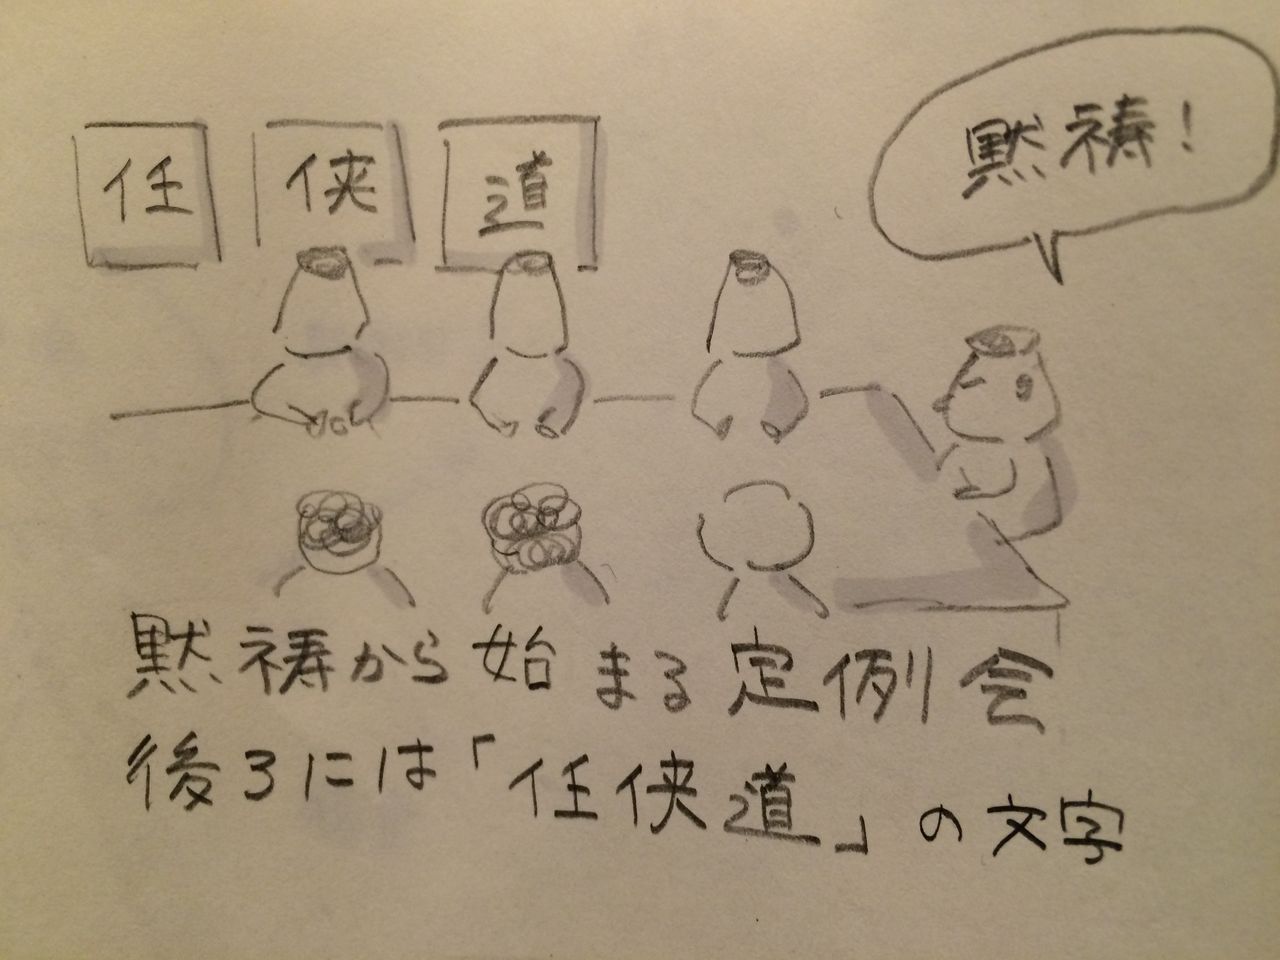 任 侠 道
黙祷!
黙祷から始まる定例会
後ろには「任侠道」の文字